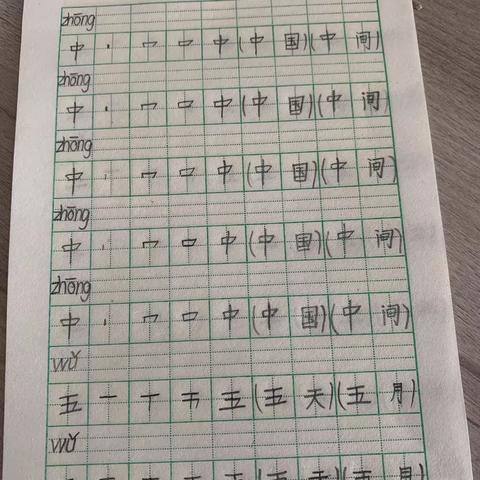 zhōng
中 丶 冖 口 中 (中 国) (中 间)
zhōng
中 丶 冖 口 中 (中 国) (中 间)
zhōng
中 丶 冖 口 中 (中 国) (中 间)
zhōng
中 丶 冖 口 中 (中 国) (中 间)
zhōng
中 丶 冖 口 中 (中 国) (中 间)
wǔ
五 一 丅 五 (五 天) (五 月)
wǔ